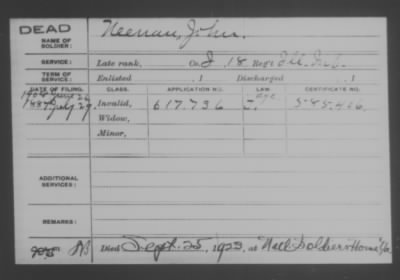 DEAD
NAME OF SOLDIER: Neenan, John.
SERVICE: Late rank, Co. I, 18 Reg't Ill. Inf.
TERM OF SERVICE: Enlisted , 1 Discharged , 1
DATE OF FILING. CLASS. APPLICATION NO. LAW CERTIFICATE NO.
1908 June 26
1887 July 29. Invalid, 617.736 585.406.
Widow,
Minor,
ADDITIONAL SERVICES:
REMARKS:
Died Sept. 25, 1923, at Natl Soldiers Home